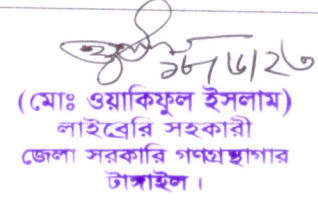 ১৮/৬/২৩
(মোঃ ওয়াকিফুল ইসলাম)
লাইব্রেরি সহকারী
জেলা সরকারি গণগ্রন্থাগার
টাঙ্গাইল ।